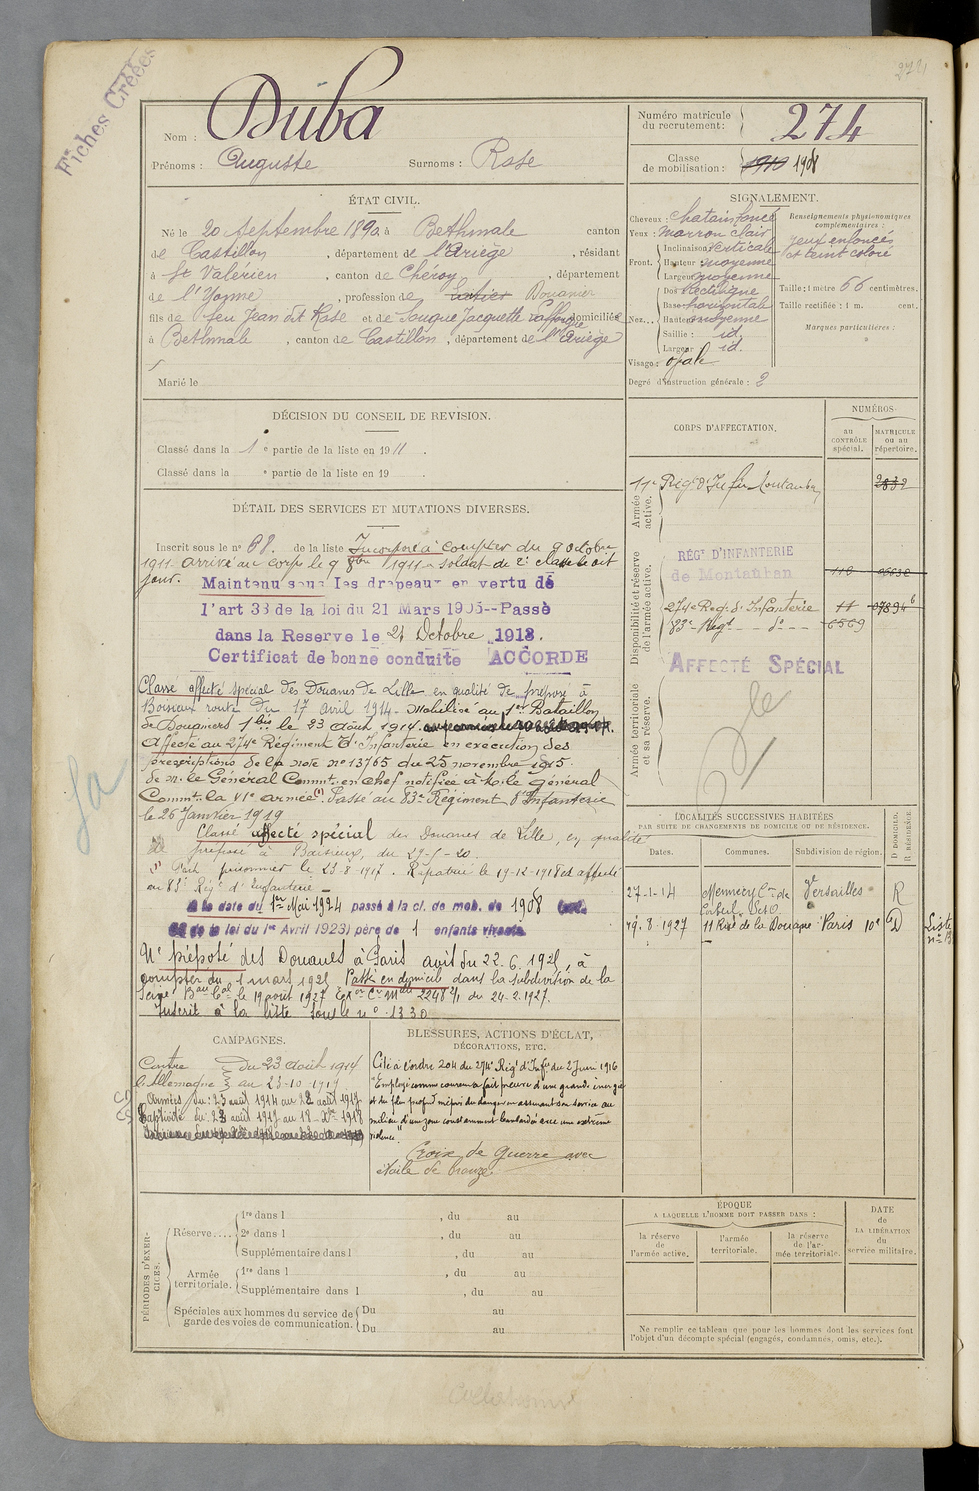 Fiches Créées
274
Nom : Duba
Prénoms : Auguste Surnoms : Rose
Numéro matricule du recrutement : 274
Classe de mobilisation : 1910 1908
ÉTAT CIVIL.
Né le 20 septembre 1890 à Bethmale canton
de Castillon, département de l'Ariège, résidant
à St Valérien, canton de Chéroy, département
de l'Yonne, profession de Douanier
fils de feu Jean dit Rose et de Souque Jacquette domiciliés
à Bethmale, canton de Castillon, département de l'Ariège
Marié le
SIGNALEMENT.
Cheveux : chatain foncé
Yeux : marron clair
Front. Inclinaison verticale
Hauteur : moyenne
Largeur moyenne
Nez... Dos rectiligne
Base horizontale
Hauteur moyenne
Saillie : id.
Largeur id.
Visage : ovale
Degré d'instruction générale : 2
Renseignements physionomiques complémentaires :
yeux enfoncés
et teint coloré
Taille : 1 mètre 66 centimètres.
Taille rectifiée : 1 m. cent.
Marques particulières :
DÉCISION DU CONSEIL DE REVISION.
Classé dans la 1e partie de la liste en 1911.
Classé dans la e partie de la liste en 19 .
DÉTAIL DES SERVICES ET MUTATIONS DIVERSES.
Inscrit sous le n° 68. de la liste Incorporé à compter du 9 octobre
1911 arrivé au corps le 9 8bre 1911 soldat de 2e classe le dit
jour. Maintenu sous les drapeaux en vertu de
l'art 33 de la loi du 21 Mars 1905--Passé
dans la Reserve le 21 Octobre 1913.
Certificat de bonne conduite ACCORDÉ
Classé affecté spécial des Douanes de Lille en qualité de préposé à
Boisieux route du 17 avril 1914. Mobilisé au 1er Bataillon
de Douaniers 1 bis le 23 Août 1914.
Affecté au 274e Régiment d'Infanterie en exécution des
prescriptions de la note n° 13765 du 25 novembre 1915
de M. le Général Commt. en chef notifiée à M. le Général
Commt. la VIe armée (1). Passé au 83e Régiment d'Infanterie
le 26 Janvier 1919
Classé affecté spécial des Douanes de Lille, en qualité
de préposé à Baisieux, du 29-5-20.
(1) Fait prisonnier le 23-8-1917. Rapatrié le 19-12-1918 et affecté
au 83e Régt d'Infanterie
A la date du 1er Mai 1924 passé à la cl. de mob. de 1908
de la loi du 1er Avril 1923) père de 1 enfants vivants.
Né préposé des Douanes à Paris avis du 22.6.1928, à
compter du 1 mars 1928 Passé en domicile dans la subdivision de la
Seine Bau Cal le 19 août 1927 2248 2/1 du 24-2-1927.
Inscrit à la liste sous le n° 1330
CORPS D'AFFECTATION.
NUMÉROS
au CONTRÔLE spécial.
MATRICULE ou au répertoire.
Armée active.
Disponibilité et réserve de l'armée active.
Armée territoriale et sa réserve.
11e Régt d'Infrie Montauban 2832
RÉGt D'INFANTERIE
de Montauban
274e Reg. d'Infanterie 11
83e Regt d° 6569
AFFECTÉ SPÉCIAL
LOCALITÉS SUCCESSIVES HABITÉES
PAR SUITE DE CHANGEMENTS DE DOMICILE OU DE RÉSIDENCE.
Dates. Communes. Subdivision de région. D DOMICILE. R RÉSIDENCE
27-1-14 Mennecy Con de Corbeil S et O Versailles R
19.8.1927 11 Rue de la Douane Paris 10e D
Liste
CAMPAGNES.
Contre du 23 août 1914
l'Allemagne au 23-10-1919
Armées du : 23 août 1914 au 22 août 1917
Captivité du 23 août 1917 au 18 Xbre 1918
BLESSURES, ACTIONS D'ÉCLAT,
DÉCORATIONS, ETC.
Cité à l'ordre 204 du 274e Régt d'Infie du 2 Juin 1916
"Employé comme coureur a fait preuve d'une grande énergie
et du plus profond mépris du danger en assurant son service au
milieu d'une zone constamment bombardée avec une extrême
violence"
Croix de guerre avec
étoile de bronze.
PÉRIODES D'EXERCICES.
Réserve.... 1re dans l , du au
2e dans l , du au
Supplémentaire dans l , du au
Armée territoriale. 1re dans l , du au
Supplémentaire dans l , du au
Spéciales aux hommes du service de garde des voies de communication. Du au
Du au
ÉPOQUE
A LAQUELLE L'HOMME DOIT PASSER DANS :
la réserve de l'armée active.
l'armée territoriale.
la réserve de l'armée territoriale.
DATE DE LA LIBÉRATION du service militaire.
Ne remplir ce tableau que pour les hommes dont les services font
l'objet d'un décompte spécial (engagés, condamnés, omis, etc.).